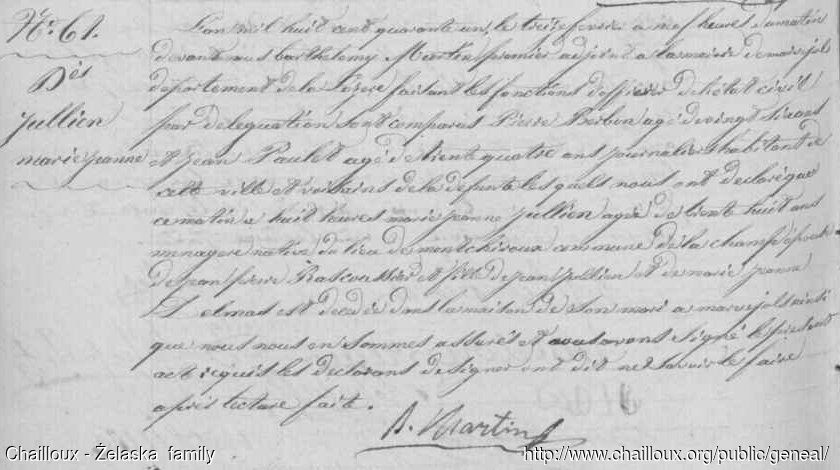 N.º 61.
Dès
Jullien
marie jeanne
L'an mil huit cent quarante un, le treize fevrier a neuf heures du matin
devant nous barthelemy Martin premier adjoint a la mairie de marvejols
departement de la Lozere faisant les fonctions d'officier de l'état civil
par deleguation sont comparus Pierre agé de vingt six ans
et Jean Paulet agé de trente quatre ans journaliers habitant de
cette ville et voisins de la defunte les quels nous ont declaré que
ce matin a huit heures marie jeanne Jullien agée de trente huit ans
menagere native du lieu de montchiroux commune de la champ epouse
de jean pierre et fille de jean Jullien et de marie jeanne
Delmas est decedée dans la maison de son mari a marvejols ainsi
que nous nous en sommes assurés et avons signé le present
acte requis les declarans de signer ont dit ne savoir le faire
après lecture faite.
B. Martin
Chailloux - Żelaska family
http://www.chailloux.org/public/geneal/